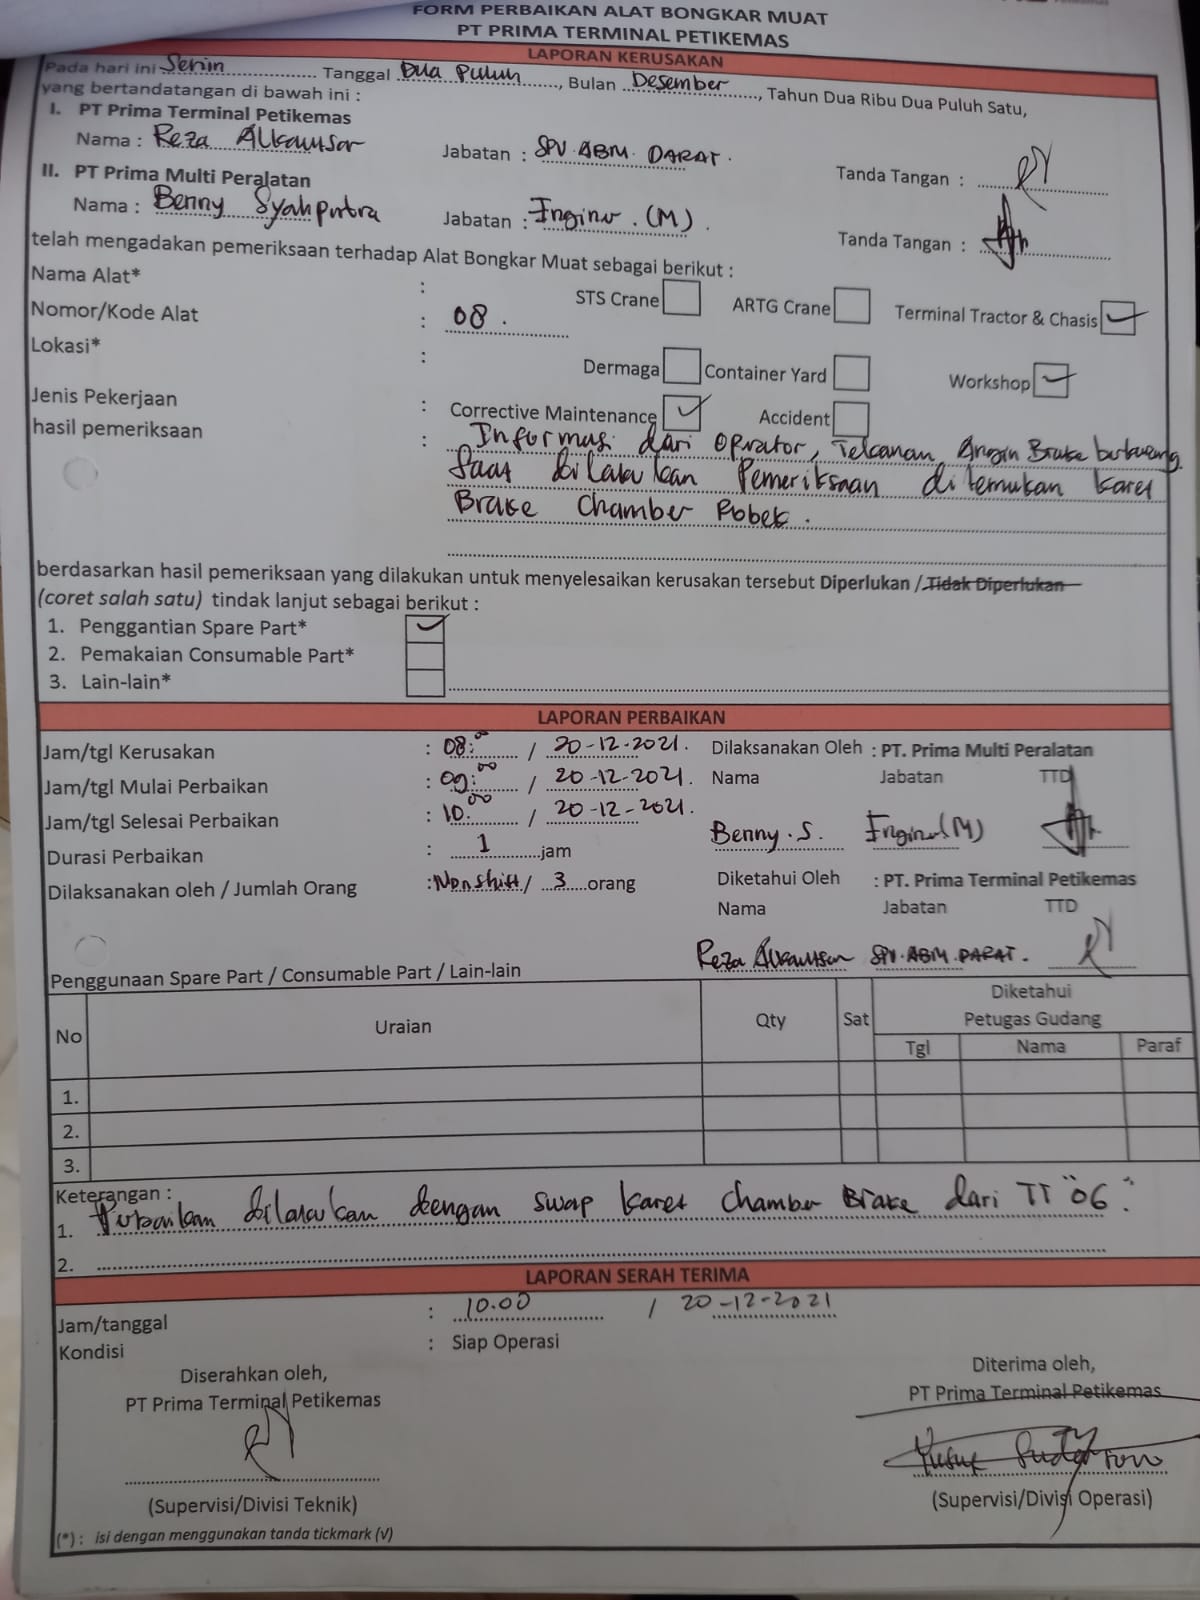 FORM PERBAIKAN ALAT BONGKAR MUAT
PT PRIMA TERMINAL PETIKEMAS
LAPORAN KERUSAKAN
Pada hari ini Senin Tanggal Dua Puluh, Bulan Desember, Tahun Dua Ribu Dua Puluh Satu,
yang bertandatangan di bawah ini :
I. PT Prima Terminal Petikemas
Nama : Reza Alkautsar Jabatan : SPV ABM DARAT. Tanda Tangan :
II. PT Prima Multi Peralatan
Nama : Benny Syahputra Jabatan : Enginer (M). Tanda Tangan :
telah mengadakan pemeriksaan terhadap Alat Bongkar Muat sebagai berikut :
Nama Alat* : STS Crane ARTG Crane Terminal Tractor & Chasis ✓
Nomor/Kode Alat : 08.
Lokasi* : Dermaga Container Yard Workshop ✓
Jenis Pekerjaan : Corrective Maintenance ✓ Accident
hasil pemeriksaan : Informasi dari Operator, Tekanan Angin Brake berkurang
Saat dilakukan Pemeriksaan ditemukan karet
Brake Chamber Robek.
berdasarkan hasil pemeriksaan yang dilakukan untuk menyelesaikan kerusakan tersebut Diperlukan / Tidak Diperlukan
(coret salah satu) tindak lanjut sebagai berikut :
1. Penggantian Spare Part* ✓
2. Pemakaian Consumable Part*
3. Lain-lain*
LAPORAN PERBAIKAN
Jam/tgl Kerusakan : 08.00 / 20-12-2021. Dilaksanakan Oleh : PT. Prima Multi Peralatan
Jam/tgl Mulai Perbaikan : 09.00 / 20-12-2021. Nama Jabatan TTD
Jam/tgl Selesai Perbaikan : 10.00 / 20-12-2021.
Benny. S. Enginer (M)
Durasi Perbaikan : 1 jam
Dilaksanakan oleh / Jumlah Orang : Non Shift / 3 orang Diketahui Oleh : PT. Prima Terminal Petikemas
Nama Jabatan TTD
Reza Alkautsar SPV. ABM. DARAT.
Penggunaan Spare Part / Consumable Part / Lain-lain
No Uraian Qty Sat Diketahui Petugas Gudang
Tgl Nama Paraf
1.
2.
3.
Keterangan :
1. Perbaikan dilakukan dengan swap karet chamber Brake dari TT "06".
2.
LAPORAN SERAH TERIMA
Jam/tanggal : 10.00 / 20-12-2021
Kondisi : Siap Operasi
Diserahkan oleh, Diterima oleh,
PT Prima Terminal Petikemas PT Prima Terminal Petikemas
(Supervisi/Divisi Teknik) (Supervisi/Divisi Operasi)
(*) : isi dengan menggunakan tanda tickmark (V)